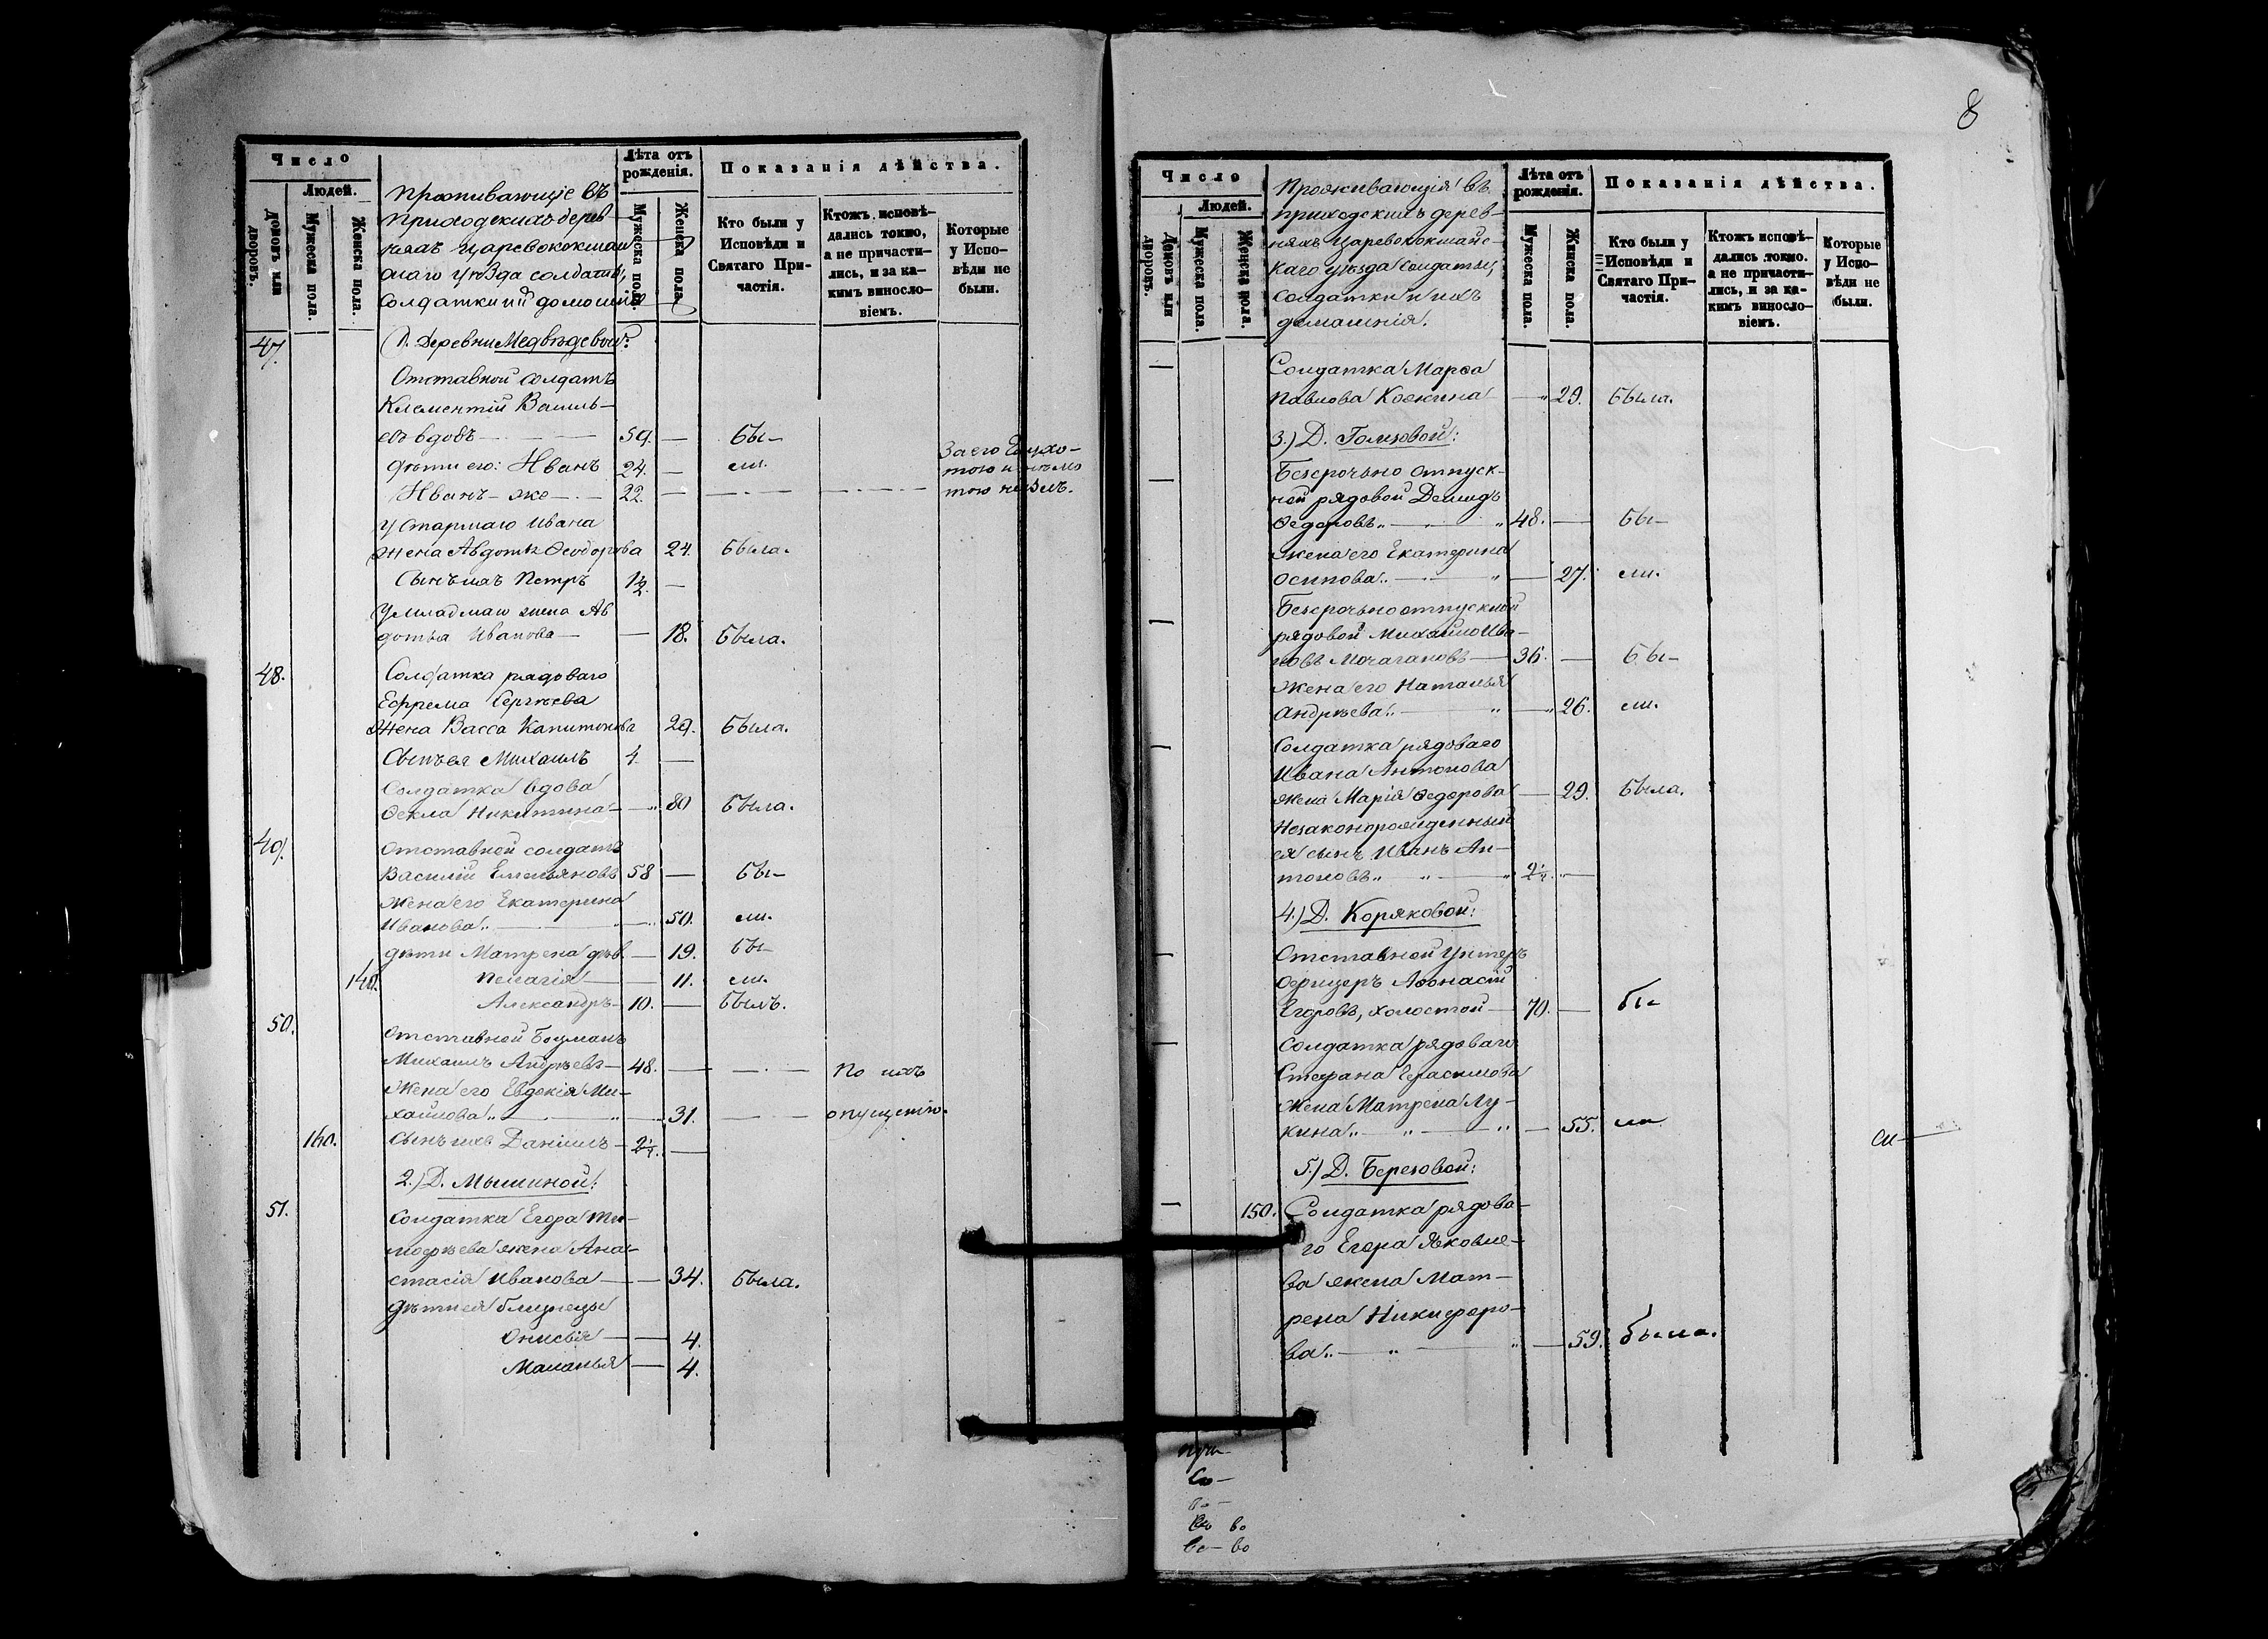 8
Число
Людей.
Домовъ или дворовъ.
Мужеска пола.
Женска пола.
Проживающiе въ
приходскихъ дерев-
няхъ Царевококшай-
скаго уѣзда солдаты,
солдатки и ихъ домашнiе
Лѣта отъ рожденiя.
Мужеска пола.
Женска пола.
Показанiя дѣйства.
Кто были у Исповѣди и Святаго При-частiя.
Ктожъ исповѣ-дались токмо, а не причасти-лись, и за ка-кимъ виносло-вiемъ.
Которые у Испо-вѣди не были.
47. 1. Деревни Медвѣдевой:
Отставной солдатъ
Климентiй Василь-
евъ вдовъ — 59. — бы-
дѣти его: Иванъ 24. — ли.
Иванъ-же — 22. —
у старшаго Ивана
жена Авдотья Ѳеодорова 24. была.
Сынъ ихъ Петръ 1½ —
у младшаго жена Ав
дотья Иванова — — 18. была.
48. Солдатка рядоваго
Ефрема Сергѣева
жена Васса Капитонова 29. была.
Сынъ ея Михаилъ 4 —
Солдатка вдова
Ѳекла Никитина — 80 была.
49. Отставной солдатъ
Василiй Емельяновъ 58 — бы-
жена его Екатерина
Иванова „ — 50. ли.
дѣти Матрена дѣв. — 19. бы-
140. Пелагiя — — 11. ли.
Александръ — 10. — былъ.
50. Отставной Боцманъ
Михаилъ Андреевъ — 48. — — по ихъ
Жена его Евдокiя Ми-
хайлова „ — „ — 31. — опущенiю.
160. Сынъ ихъ Данiилъ — 2¼. —
2.) Д. Мышиной:
51. Солдатка Егора Ти-
моѳѣева жена Ана-
стасiя Иванова — — 34. была.
Дѣти ея близнецы
Онисья — — 4.
Маланья — 4.
Число
Людей.
Домовъ или дворовъ.
Мужеска пола.
Женска пола.
Проживающiя въ
приходскихъ дерев-
няхъ Царевококшайс-
каго уѣзда солдаты,
солдатки и ихъ
домашнiя.
Лѣта отъ рожденiя.
Мужеска пола.
Женска пола.
Показанiя дѣйства.
Кто были у Исповѣди и Святаго При-частiя.
Ктожъ исповѣ-дались токмо. а не причасти-лись, и за ка-кимъ виносло-вiемъ.
Которые у Испо-вѣди не были.
— Солдатка Марѳа
Павлова — „ 29. была.
3.)
— Безсрочьно отпуск-
ной рядовой Демидъ
Ѳедоровъ „ — „ 48. — бы-
жена его Екатерина
Осипова „ — „ — 27. ли.
— Безсрочьно отпускной
рядовой Михайло Ива-
новъ Мочагановъ — 36. — бы-
жена его Наталья
Андрѣева „ — „ — 26. ли.
— Солдатка рядоваго
Ивана Антонова
жена Марiя Ѳедорова — 29. была.
Незаконорожденный
ея сынъ Иванъ Ан-
тоновъ „ „ — „ 2¼. —
4.) Д. Коряковой:
— Отставной Унтеръ
офицеръ Аѳонасiй
Егоровъ, холостой — 70. — бы-
— Солдатка рядоваго
Стефана Герасимова
жена Матрена Лу-
кина „ — „ — „ — 55. ли
5.) Д. Березовой:
— 150. Солдатка рядова-
го Егора Яковле-
ва жена Мат-
рена Никифоро-
ва „ — „ — „ — 59. была.